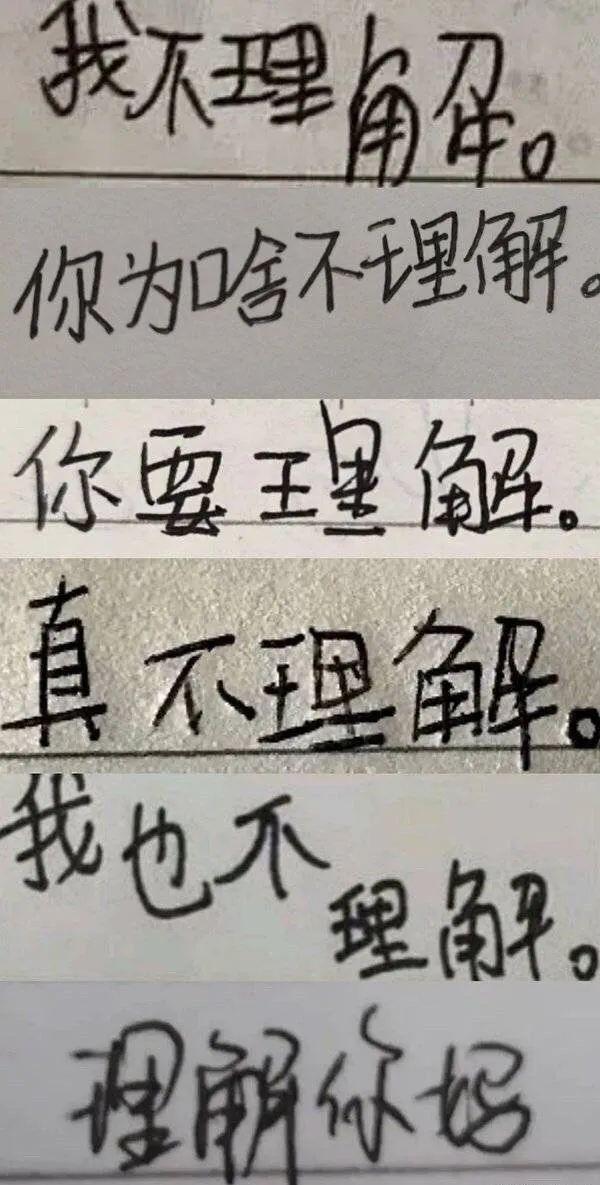 我不理解。
你为啥不理解。
你要理解。
真不理解。
我也不理解。
理解你妈